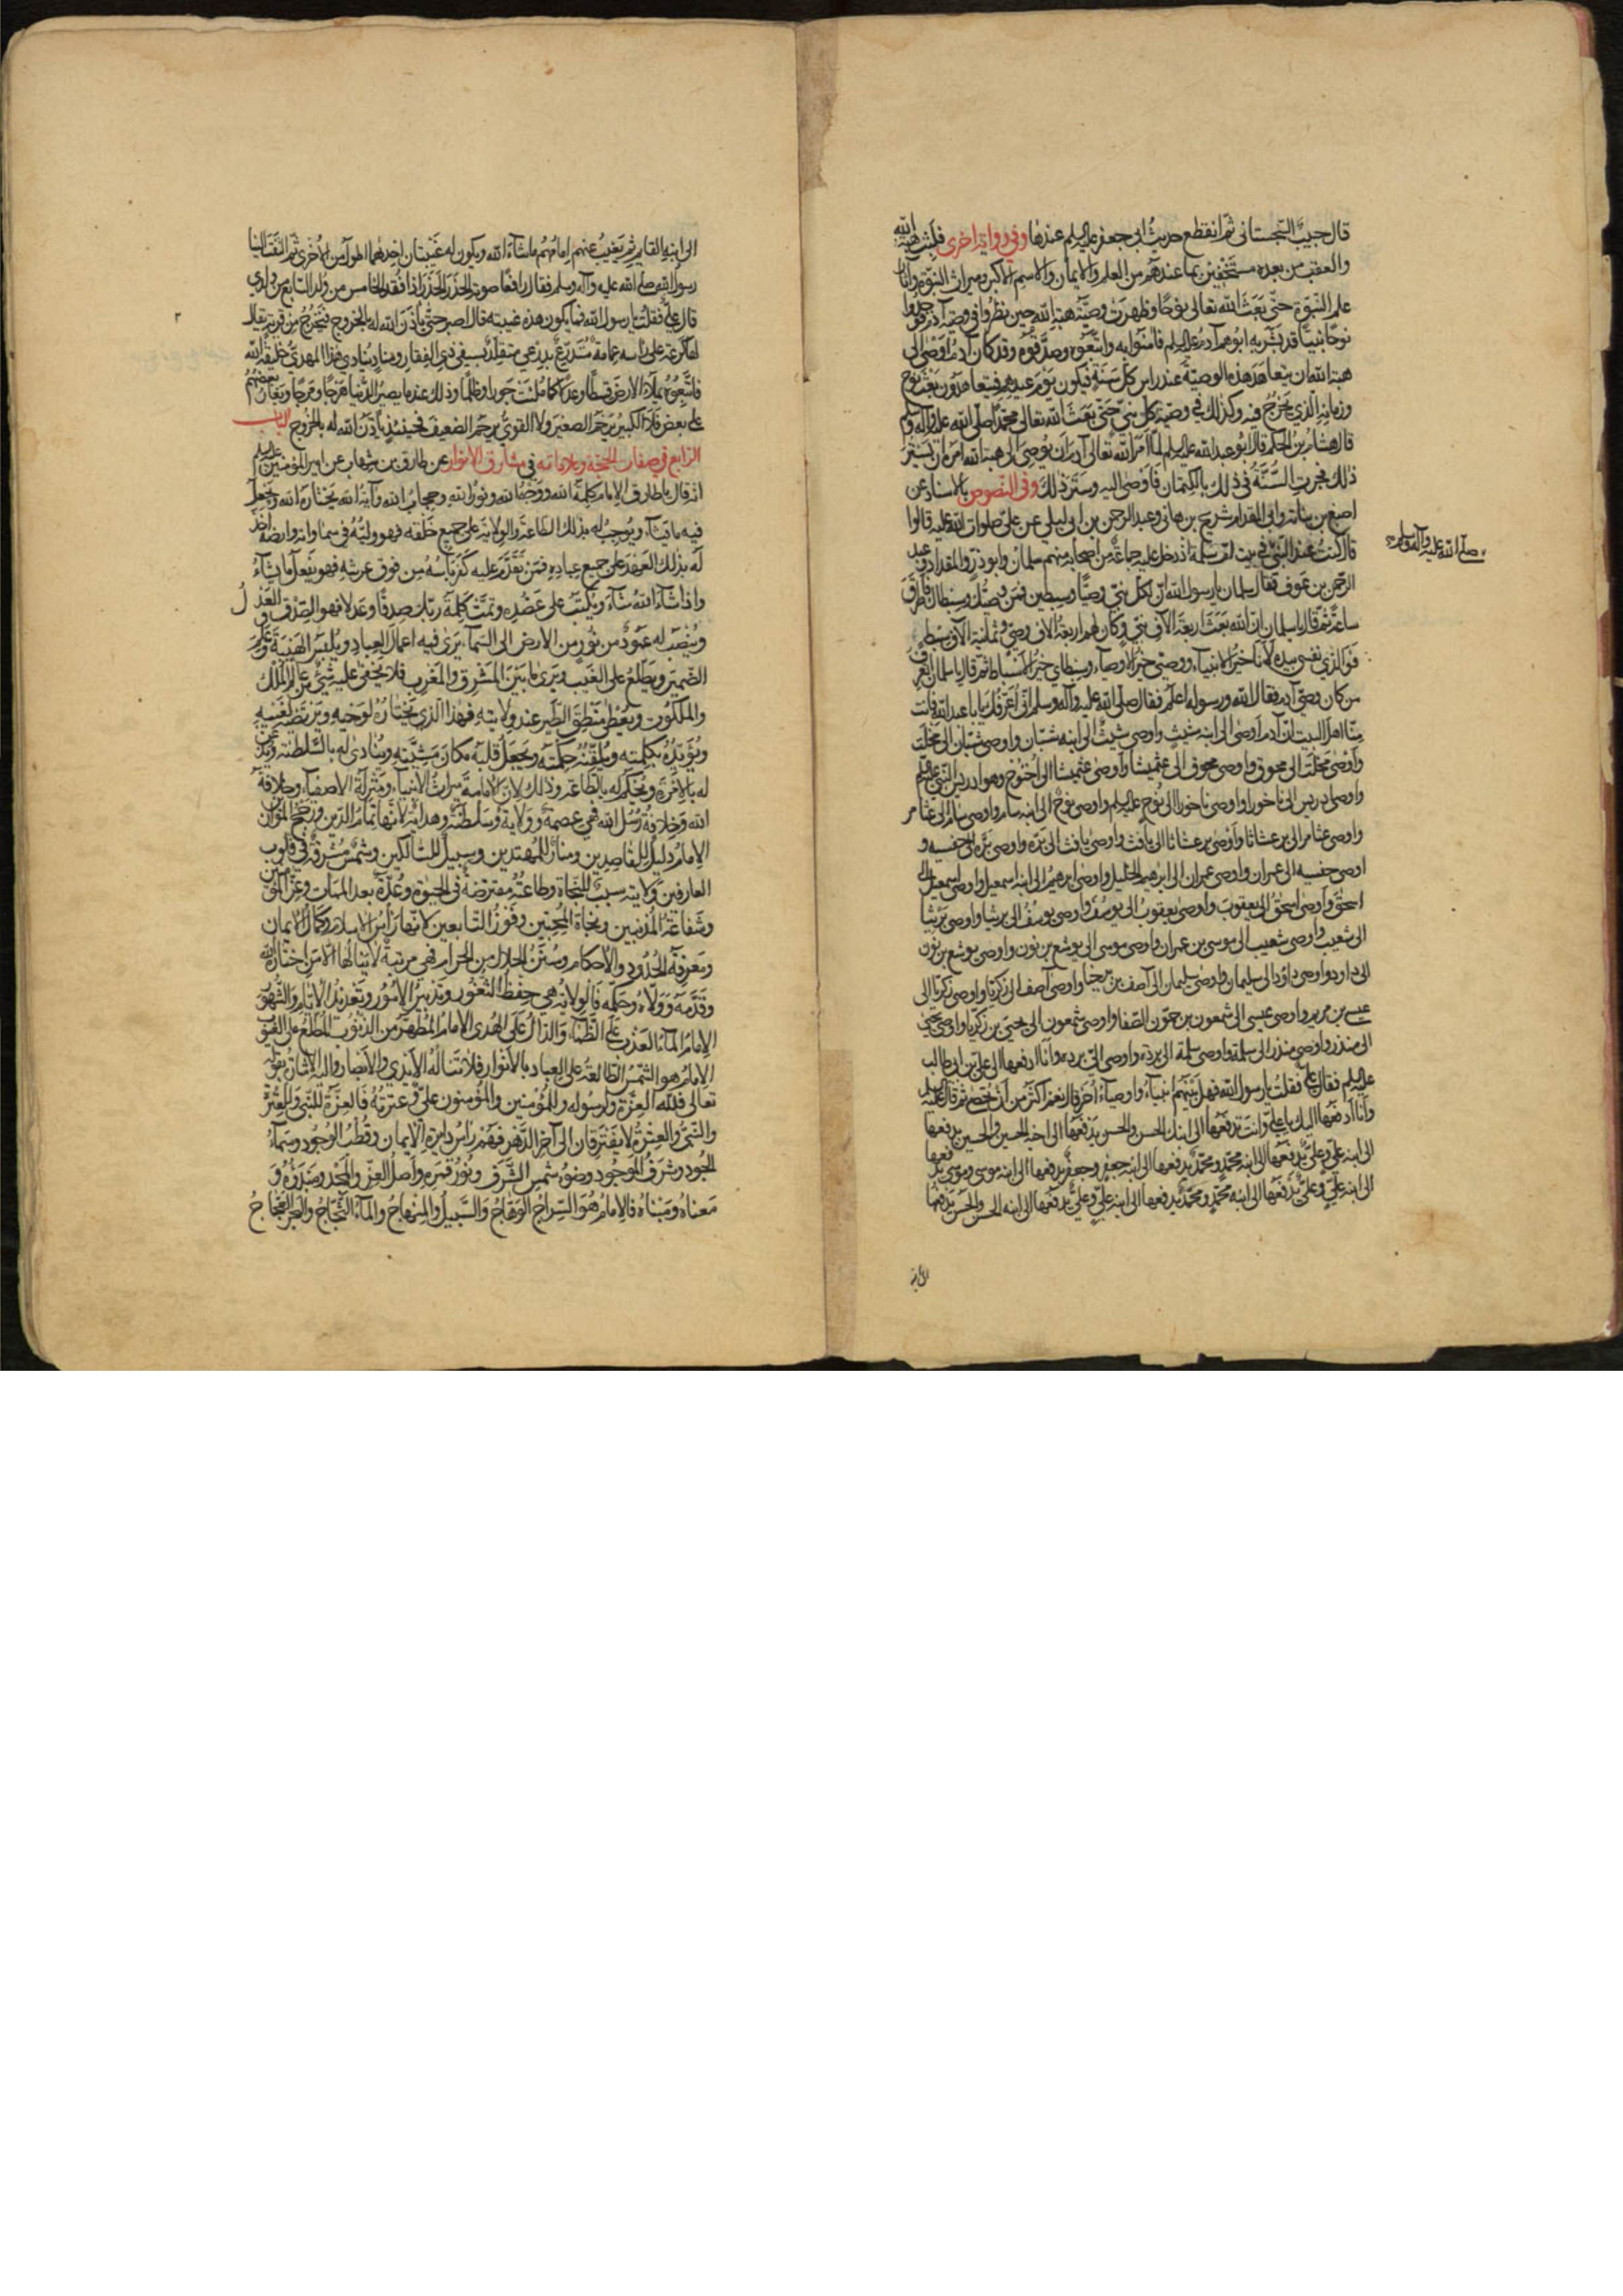 قال حبيب السجستانى ثم انقطع حديث ابى جعفر عليه السلم عندها وفى رواية اخرى فلبث هبة الله
والعقب من بعده مستخفين بما عندهم من العلم والايمان والاسم الاكبر وميراث النبوة وآثار
علم النبوة حتى بعث الله تعالى نوحا وظهرت وصية هبة الله حين نظروا فى وصية آدم فوجدوا
نوحا نبيا قد بشر به ابوهم آدم عليه السلم فآمنوا به واتبعوه وصدقوه وقد كان آدم اوصى الى
هبة الله ان يتعاهد هذه الوصية عند راس كل سنة فيكون يوم عيدهم فيتعاهدون بعث نوح
وزمانه الذي يخرج فيه وكذلك فى وصية كل نبى حتى بعث الله تعالى محمدا صلى الله عليه وآله وسلم
قال هشام بن الحكم قال ابو عبد الله عليه السلم لما امر الله تعالى آدم ان يوصى الى هبة الله امره ان يستتر
ذلك فجرت السنة فى ذلك بالكتمان فاوصى اليه وستر ذلك وفى النصوص بالاسناد عن
اصبغ بن نباتة وابى المقدام شريح بن هانى وعبد الرحمن بن ابى ليلى عن على صلوات الله عليه قالوا
قال كنت عند النبى فى بيت ام سلمة اذ دخل عليه جماعة من اصحابه منهم سلمان وابو ذر والمقداد وعبد
صلى الله عليه وآله
الرحمن بن عوف فقال سلمان يا رسول الله ان لكل نبى وصيا وسبطين فمن وصيك وسبطاك فاطرق
ساعة ثم قال يا سلمان ان الله بعث اربعة آلاف نبى وكان لهم اربعة آلاف وصى وثمانية آلاف سبط
فوالذي نفسى بيده لانا خير الانبياء ووصيى خير الاوصياء وسبطاي خير الاسباط ثم قال يا سلمان اتعرف
من كان وصى آدم فقال الله ورسوله اعلم فقال صلى الله عليه وآله وسلم انى اعرفك يابا عبد الله فانت
منا اهل البيت ان آدم اوصى الى ابنه شيث واوصى شيث الى ابنه شبان واوصى شبان الى مخلث
واوصى مخلث الى محوق واوصى محوق الى عثميشا واوصى عثميشا الى اخنوخ وهو ادريس النبى عليه السلم
واوصى ادريس الى ناخورا واوصى ناخورا الى نوح عليه السلم واوصى نوح الى ابنه سام واوصى سام الى عثامر
واوصى عثامر الى برعشاثا واوصى برعشاثا الى يافث واوصى يافث الى بره واوصى بره الى جفسيه و
اوصى جفسيه الى عمران واوصى عمران الى ابرهيم الخليل واوصى ابرهيم الى ابنه اسمعيل واوصى اسمعيل الى
اسحق واوصى اسحق الى يعقوب واوصى يعقوب الى يوسف واوصى يوسف الى بريثيا واوصى بريثيا
الى شعيب واوصى شعيب الى موسى بن عمران واوصى موسى الى يوشع بن نون واوصى يوشع بن نون
الى داود واوصى داود الى سليمان واوصى سليمان الى آصف بن برخيا واوصى آصف الى زكريا واوصى زكريا الى
عيسى بن مريم واوصى عيسى الى شمعون بن حمون الصفا واوصى شمعون الى يحيى بن زكريا واوصى يحيى
الى منذر واوصى منذر الى سلمة واوصى سلمة الى بردة واوصى الى بردة وانا ادفعها الى على بن ابى طالب
عليه السلم فقال على فقلت يا رسول الله فهل بينهم انبياء واوصياء اخر قال نعم اكثر من ان تحصى ثم قال
وانا ادفعها اليك يا على وانت تدفعها الى ابنك الحسن والحسن يدفعها الى اخيه الحسين والحسين يدفعها
الى ابنه على وعلى يدفعها الى ابنه محمد ومحمد يدفعها الى ابنه جعفر وجعفر يدفعها الى ابنه موسى وموسى يدفعها
الى ابنه على وعلى يدفعها الى ابنه محمد ومحمد يدفعها الى ابنه على وعلى يدفعها الى ابنه الحسن والحسن يدفعها
الى ابنه
الى ابنه القايم ثم يغيب عنهم امامهم ما شاء الله ويكون له غيبتان احدهما اطول من الاخرى ثم التفت الينا
رسول الله صلى الله عليه وآله وسلم فقال رافعا صوته الحذر الحذر اذا فقد الخامس من ولد السابع من ولدي
قال على فقلت يا رسول الله فما يكون هذه غيبته قال اصبر حتى ياذن الله له بالخروج فيخرج من قرية يقال
٢
لها كرعة على راسه عمامة متدرع بدرعى متقلد بسيفى ذي الفقار ومناد ينادي هذا المهدي خليفة الله
فاتبعوه يملأ الارض قسطا وعدلا كما ملئت جورا وظلما وذلك عندما يصير الدنيا هرجا ومرجا ويغار بعضهم
على بعض فلا الكبير يرحم الصغير ولا القوي يرحم الضعيف فحينئذ ياذن الله له بالخروج الباب
الرابع فى صفات الحجة وعلاماته فى مشارق الانوار عن طارق بن شهاب عن امير المؤمنين عليه السلم
انه قال يا طارق الامام كلمة الله ووجه الله ونور الله وحجاب الله وآية الله يختاره الله ويجعل
فيه ما يشاء ويوجب له بذلك الطاعة والولاية على جميع خلقه فهو وليه فى سماواته وارضه اخذ
له بذلك العهد على جميع عباده فمن تقدم عليه كفر بالله من فوق عرشه فهو يفعل ما يشاء
واذا شاء الله شاء ويكتب على عضده وتمت كلمة ربك صدقا وعدلا فهو الصدق والعدل
وينصب له عمود من نور من الارض الى السماء يرى فيه اعمال العباد ويلبس الهيبة وعلم
الضمير ويطلع على الغيب ويرى ما بين المشرق والمغرب فلا يخفى عليه شئ من عالم الملك
والملكوت ويعطى منطق الطير عند ولايته فهذا الذي يختاره لوحيه ويرتضيه لغيبه
ويؤيده بكلمته ويلقنه حكمته ويجعل قلبه مكان مشيته وينادى له بالسلطنة ويذعن
له بالامرة ويحكم له بالطاعة وذلك لان الامامة ميراث الانبياء ومنزلة الاصفياء وخلافة
الله وخلافة رسل الله فهى عصمة وولاية وسلطنة وهداية لانها تمام الدين ورجح الموازين
الامام دليل للقاصدين ومنار للمهتدين وسبيل للسالكين وشمس مشرقة فى قلوب
العارفين ولايته سبب للنجاة وطاعته مفترضة فى الحيوة وعدة بعد الممات وعز المؤمنين
وشفاعة المذنبين ونجاة المحبين وفوز التابعين لانها راس الاسلام وكمال الايمان
ومعرفة الحدود والاحكام وسنن الحلال من الحرام فهى مرتبة لا ينالها الا من اختاره الله
وقدمه وولاه وحكمه فالولاية هى حفظ الثغور وتدبير الامور وتعديد الايام والشهور
الامام الماء العذب على الظماء والدال على الهدى الامام المطهر من الذنوب المطلع على الغيوب
الامام هو الشمس الطالعة على العباد بالانوار فلا تناله الايدي والابصار واليه الاشارة بقوله
تعالى فلله العزة ولرسوله وللمؤمنين والمؤمنون على وعترته فالعزة للنبى وللعترة
والنبى والعترة لا يفترقان الى آخر الدهر فهم راس دايرة الايمان وقطب الوجود وسماء
الجود وشرف الموجود وضوء شمس الشرف ونور قمره واصل العز والمجد ومبدؤه و
معناه ومبناه فالامام هو السراج الوهاج والسبيل والمنهاج والماء الثجاج والبحر العجاج